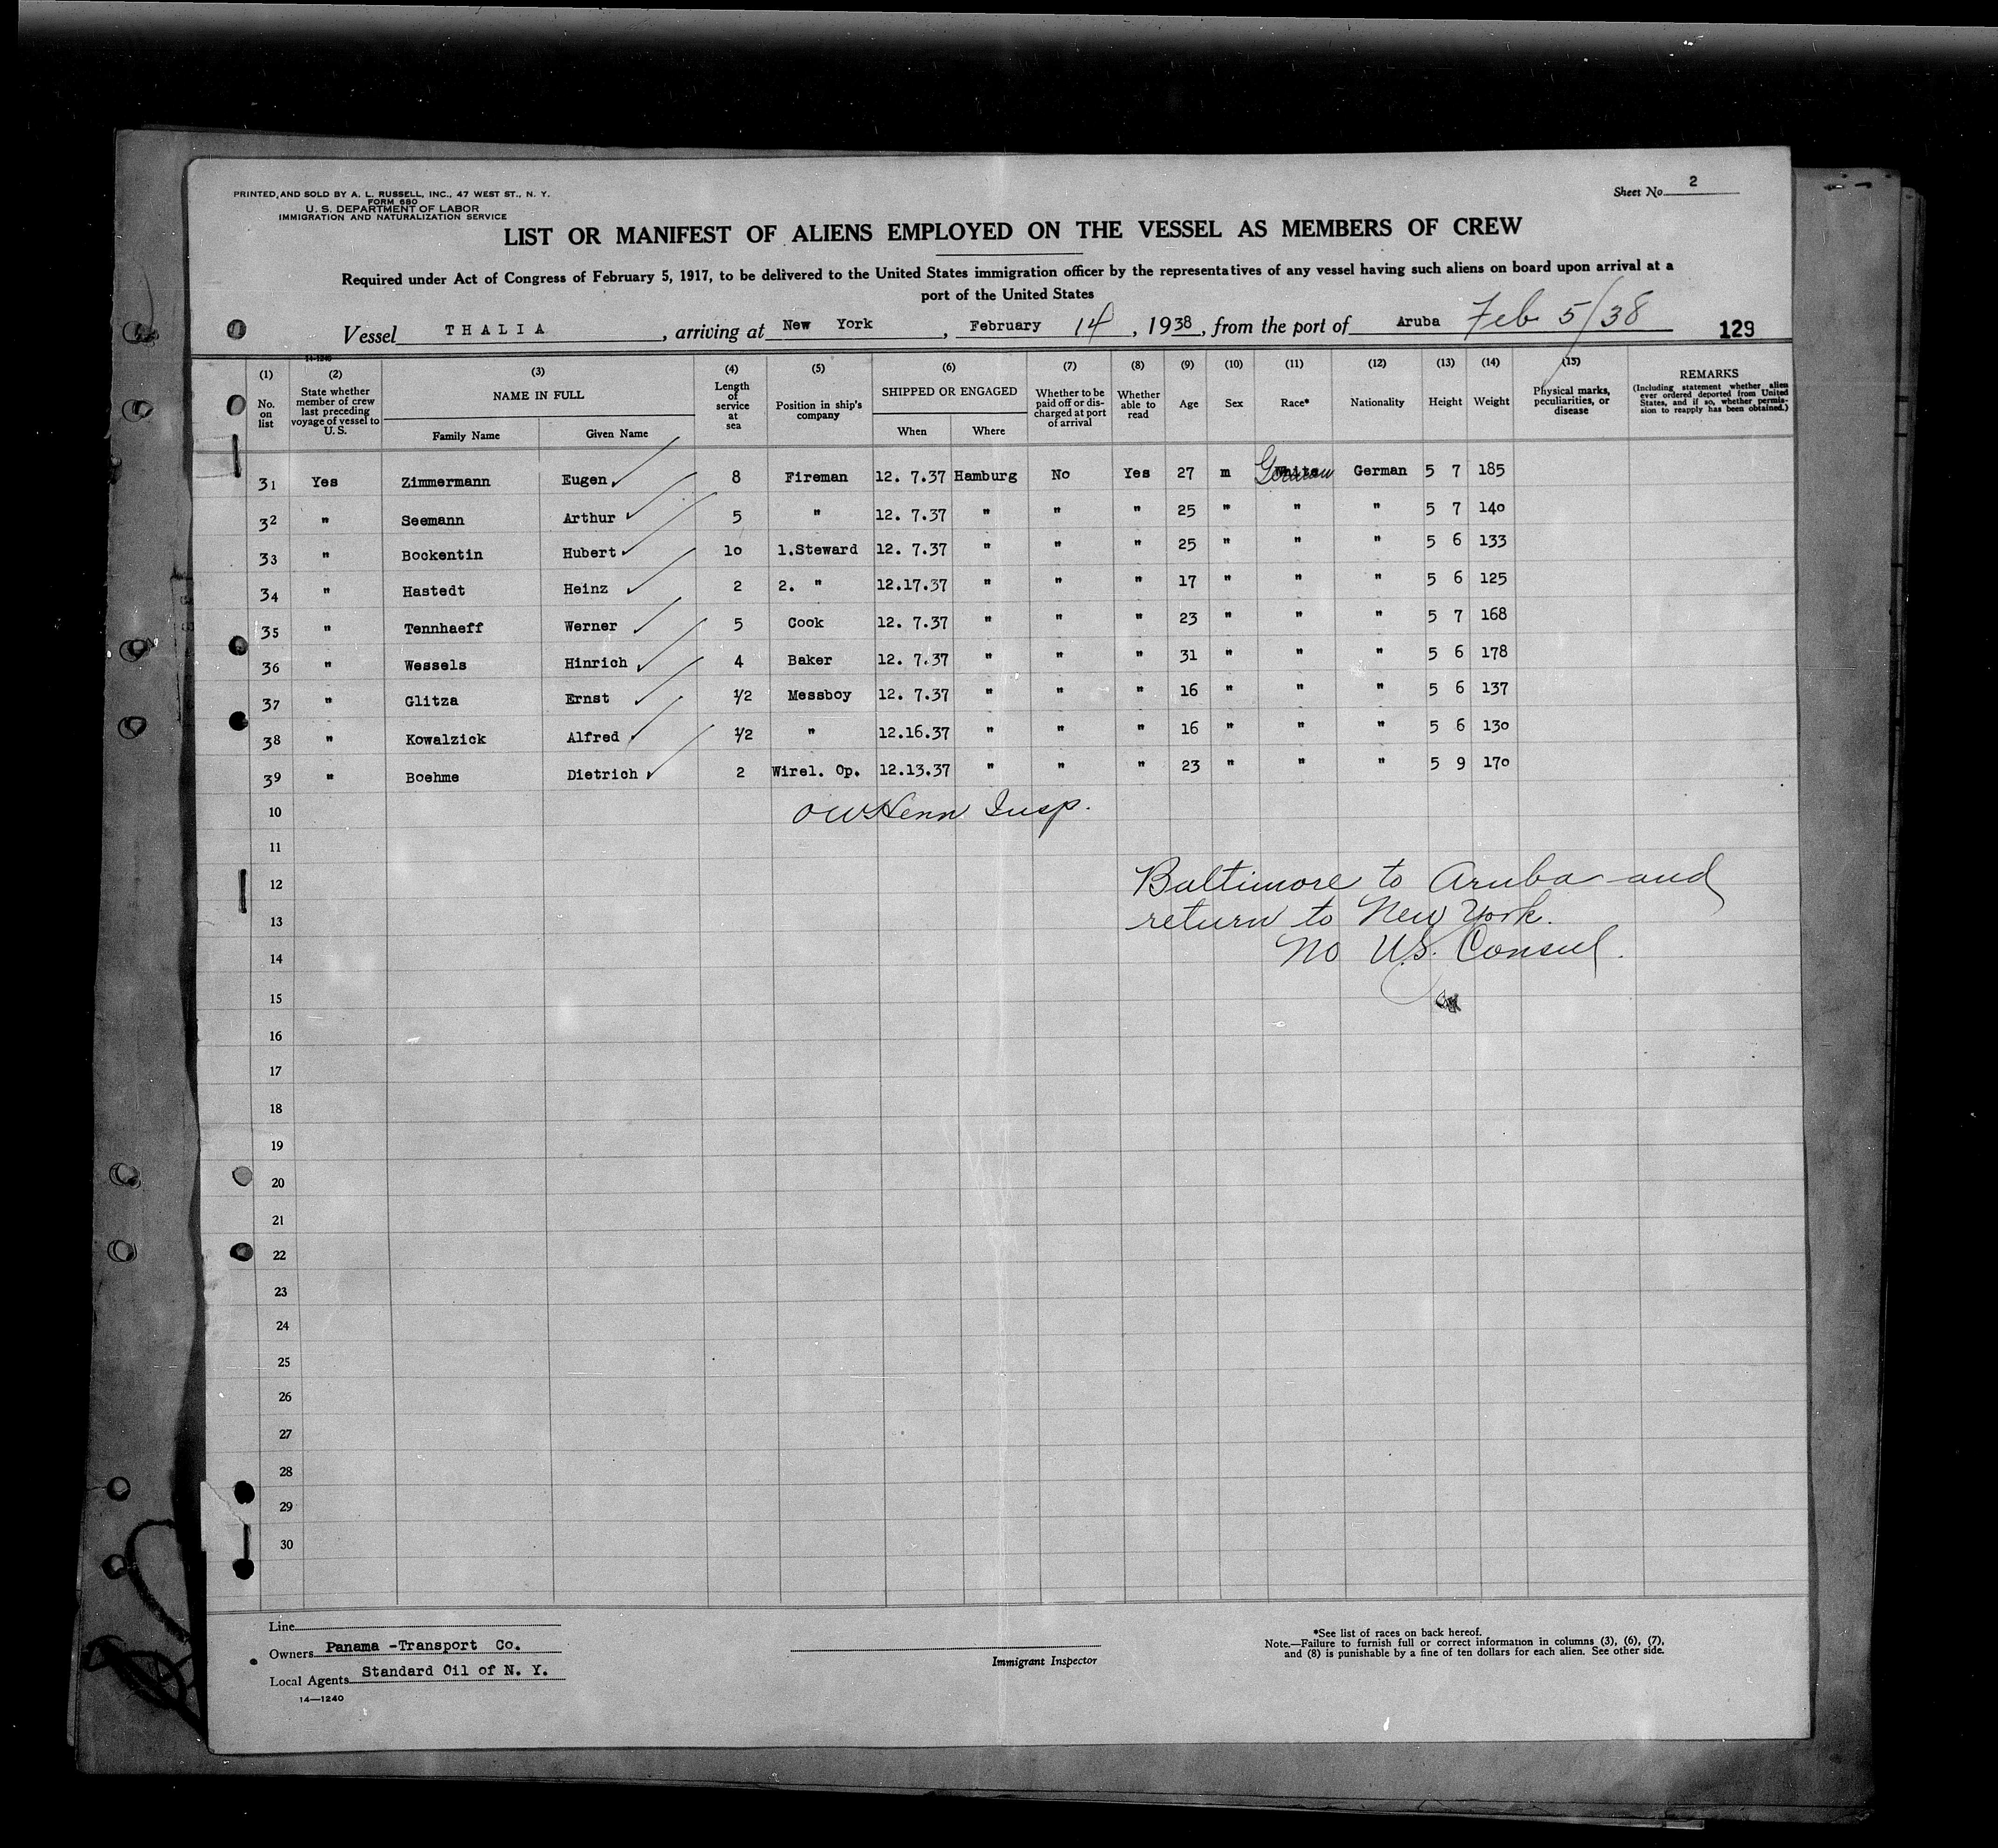 PRINTED AND SOLD BY A. L. RUSSELL, INC., 47 WEST ST., N. Y.
FORM 680
U. S. DEPARTMENT OF LABOR
IMMIGRATION AND NATURALIZATION SERVICE
Sheet No. 2
LIST OR MANIFEST OF ALIENS EMPLOYED ON THE VESSEL AS MEMBERS OF CREW
Required under Act of Congress of February 5, 1917, to be delivered to the United States immigration officer by the representatives of any vessel having such aliens on board upon arrival at a
port of the United States
Vessel THALIA, arriving at New York, February 14, 1938, from the port of Aruba Feb 5/38 129
14-1240
(1) No. on list
(2) State whether member of crew last preceding voyage of vessel to U. S.
(3) NAME IN FULL
Family Name Given Name
(4) Length of service at sea
(5) Position in ship's company
(6) SHIPPED OR ENGAGED
When Where
(7) Whether to be paid off or discharged at port of arrival
(8) Whether able to read
(9) Age
(10) Sex
(11) Race*
(12) Nationality
(13) Height
(14) Weight
(15) Physical marks, peculiarities, or disease
REMARKS (Including statement whether alien ever ordered deported from United States, and if so, whether permission to reapply has been obtained.)
31 Yes Zimmermann Eugen 8 Fireman 12. 7.37 Hamburg No Yes 27 m White German German 5 7 185
32 " Seemann Arthur 5 " 12. 7.37 " " " 25 " " " 5 7 140
33 " Bockentin Hubert 10 1.Steward 12. 7.37 " " " 25 " " " 5 6 133
34 " Hastedt Heinz 2 2. " 12.17.37 " " " 17 " " " 5 6 125
35 " Tennhaeff Werner 5 Cook 12. 7.37 " " " 23 " " " 5 7 168
36 " Wessels Hinrich 4 Baker 12. 7.37 " " " 31 " " " 5 6 178
37 " Glitza Ernst 1/2 Messboy 12. 7.37 " " " 16 " " " 5 6 137
38 " Kowalzick Alfred 1/2 " 12.16.37 " " " 16 " " " 5 6 130
39 " Boehme Dietrich 2 Wirel. Op. 12.13.37 " " " 23 " " " 5 9 170
10 OWHenn Insp.
11
12 Baltimore to Aruba and
13 return to New York.
14 No U.S. Consul.
15
16
17
18
19
20
21
22
23
24
25
26
27
28
29
30
Line
Owners Panama -Transport Co.
Local Agents Standard Oil of N. Y.
14—1240
Immigrant Inspector
*See list of races on back hereof.
Note.—Failure to furnish full or correct information in columns (3), (6), (7),
and (8) is punishable by a fine of ten dollars for each alien. See other side.